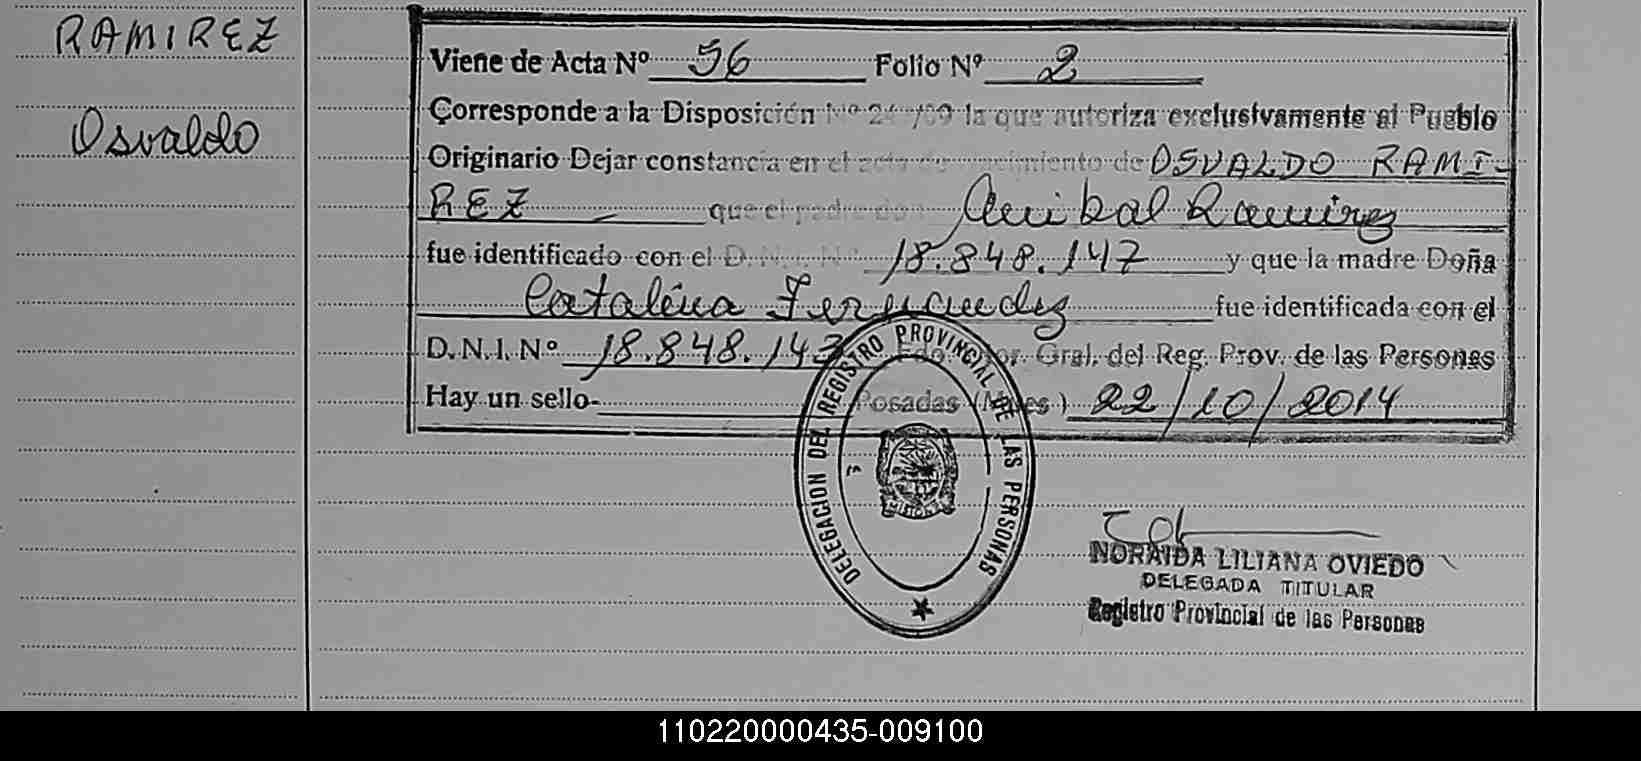 RAMIREZ
Osvaldo
Viene de Acta Nº 56 Folio Nº 2
Corresponde a la Disposición Nº /09 la que autoriza exclusivamente al Pueblo
Originario Dejar constancia en el acta de nacimiento de OSVALDO RAMI-
REZ - que el padre Anibal Ramirez
fue identificado con el D.N.I. Nº 18.848.147 y que la madre Doña
Catalina Fernandez fue identificada con el
D.N.I. Nº 18.848.143 Fdo. Gral. del Reg. Prov. de las Personas
Hay un sello- Posadas (Mnes) 22/10/2014
DELEGACION DEL REGISTRO PROVINCIAL DE LAS PERSONAS
MISIONES
NORAIDA LILIANA OVIEDO
DELEGADA TITULAR
Registro Provincial de las Personas
110220000435-009100